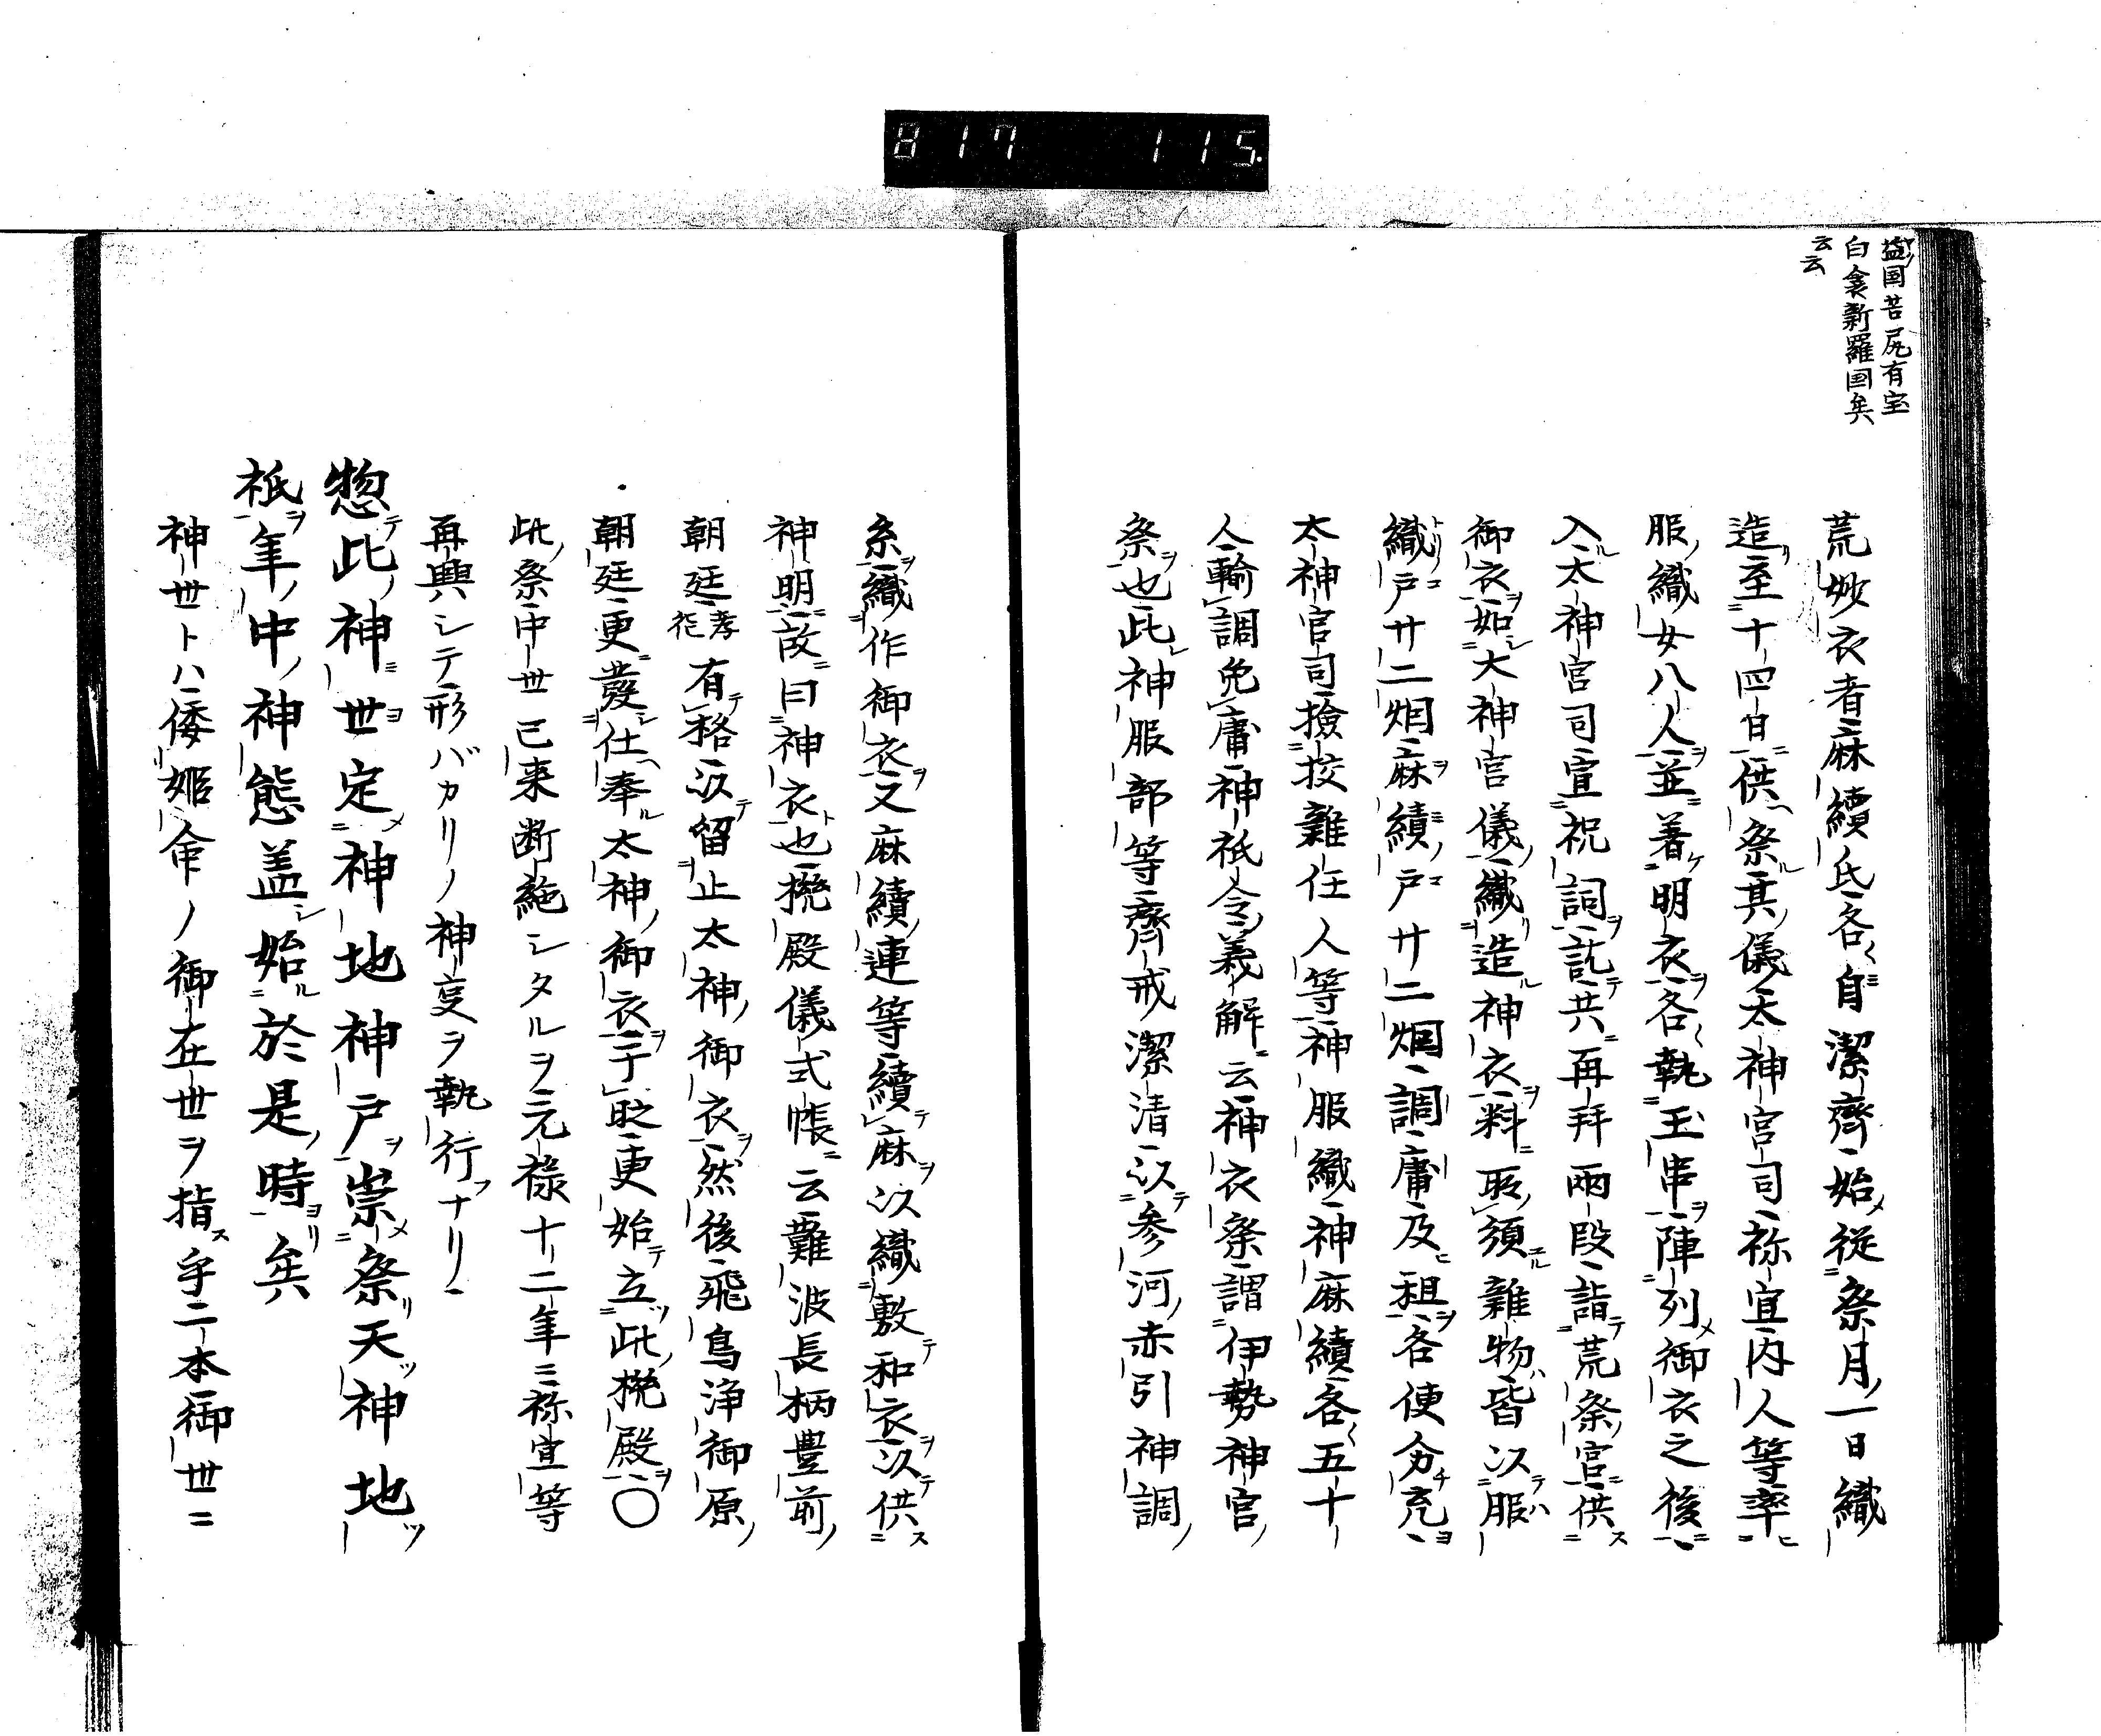 817 115.
益国苦尻有宝
白衾新羅国矣
云云
荒妙衣者麻續氏各自潔齊始従祭月一日織
造至十四日供祭其儀太神宮司祢宜内人等率
服織女八人並著明衣各執玉串陣列御衣之後
入太神宮司宣祝詞訖共再拜兩段詣荒祭宮供
御衣如大神宮儀織造神衣料所須雜物皆以服
織戸廿二烟麻績戸廿二烟調庸及租各便分充
太神宮司撿挍雜任人等神服織神麻續各五十
人輸調免庸神祇令義解云神衣祭謂伊勢神宮
祭也此神服部等齊戒潔清以参河赤引神調
糸織作御衣又麻續連等續麻以織敷和衣以供
神明故曰神衣也機殿儀式帳云難波長柄豊前
朝廷孝徳有格以留止太神御衣然後飛鳥浄御原
朝廷更發仕奉太神御衣于時更始立此機殿〇
此祭中世已来断絶シタルヲ元禄十二年ニ祢宜等
再興シテ形バカリノ神㕝ヲ執行フナリ
惣此神世定神地神戸崇祭天神地
祇年中神態盖始於是時矣
神世トハ倭姫命ノ御在世ヲ指ス乎二本御世ニ